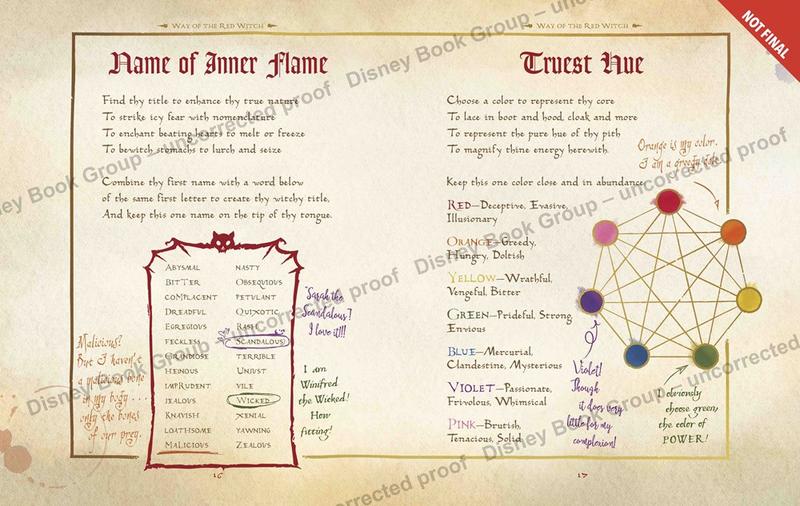 Way of the Red Witch
Name of Inner Flame
Find thy title to enhance thy true nature
To strike icy fear with nomenclature
To enchant beating hearts to melt or freeze
To bewitch stomachs to lurch and seize
Combine thy first name with a word below
of the same first letter to create thy witchy title,
And keep this one name on the tip of thy tongue.
Abysmal
Bitter
Complacent
Dreadful
Egregious
Feckless
Grandiose
Heinous
Imprudent
Jealous
Knavish
Loathsome
Malicious
Nasty
Obsequious
Petulant
Quixotic
Rash
Scandalous
Terrible
Unjust
Vile
Wicked
Xenial
Yawning
Zealous
Malicious?
But I haven't
a malicious bone
in my body . . .
only the bones
of our prey.
"Sarah the
Scandalous"!
I love it!!!
I am
Winifred
the Wicked!
How
fitting!
16
Way of the Red Witch
Truest Hue
Choose a color to represent thy core
To lace in boot and hood, cloak and more
To represent the pure hue of thy pith
To magnify thine energy herewith.
Keep this one color close and in abundance
Red—Deceptive, Evasive,
Illusionary
Orange—Greedy,
Hungry, Doltish
Yellow—Wrathful,
Vengeful, Bitter
Green—Prideful, Strong,
Envious
Blue—Mercurial,
Clandestine, Mysterious
Violet—Passionate,
Frivolous, Whimsical
Pink—Brutish,
Tenacious, Solid
Orange is my color.
I am a greedy
Violet!
Though
it does very
little for my
complexion!
I obviously
choose green,
the color of
POWER!
17
NOT FINAL
Disney Book Group – uncorrected proof
Disney Book Group – uncorrected proof
Disney Book Group – uncorrected proof
Disney Book Group – uncorrected proof
Disney Book Group – uncorrected
uncorrected proof